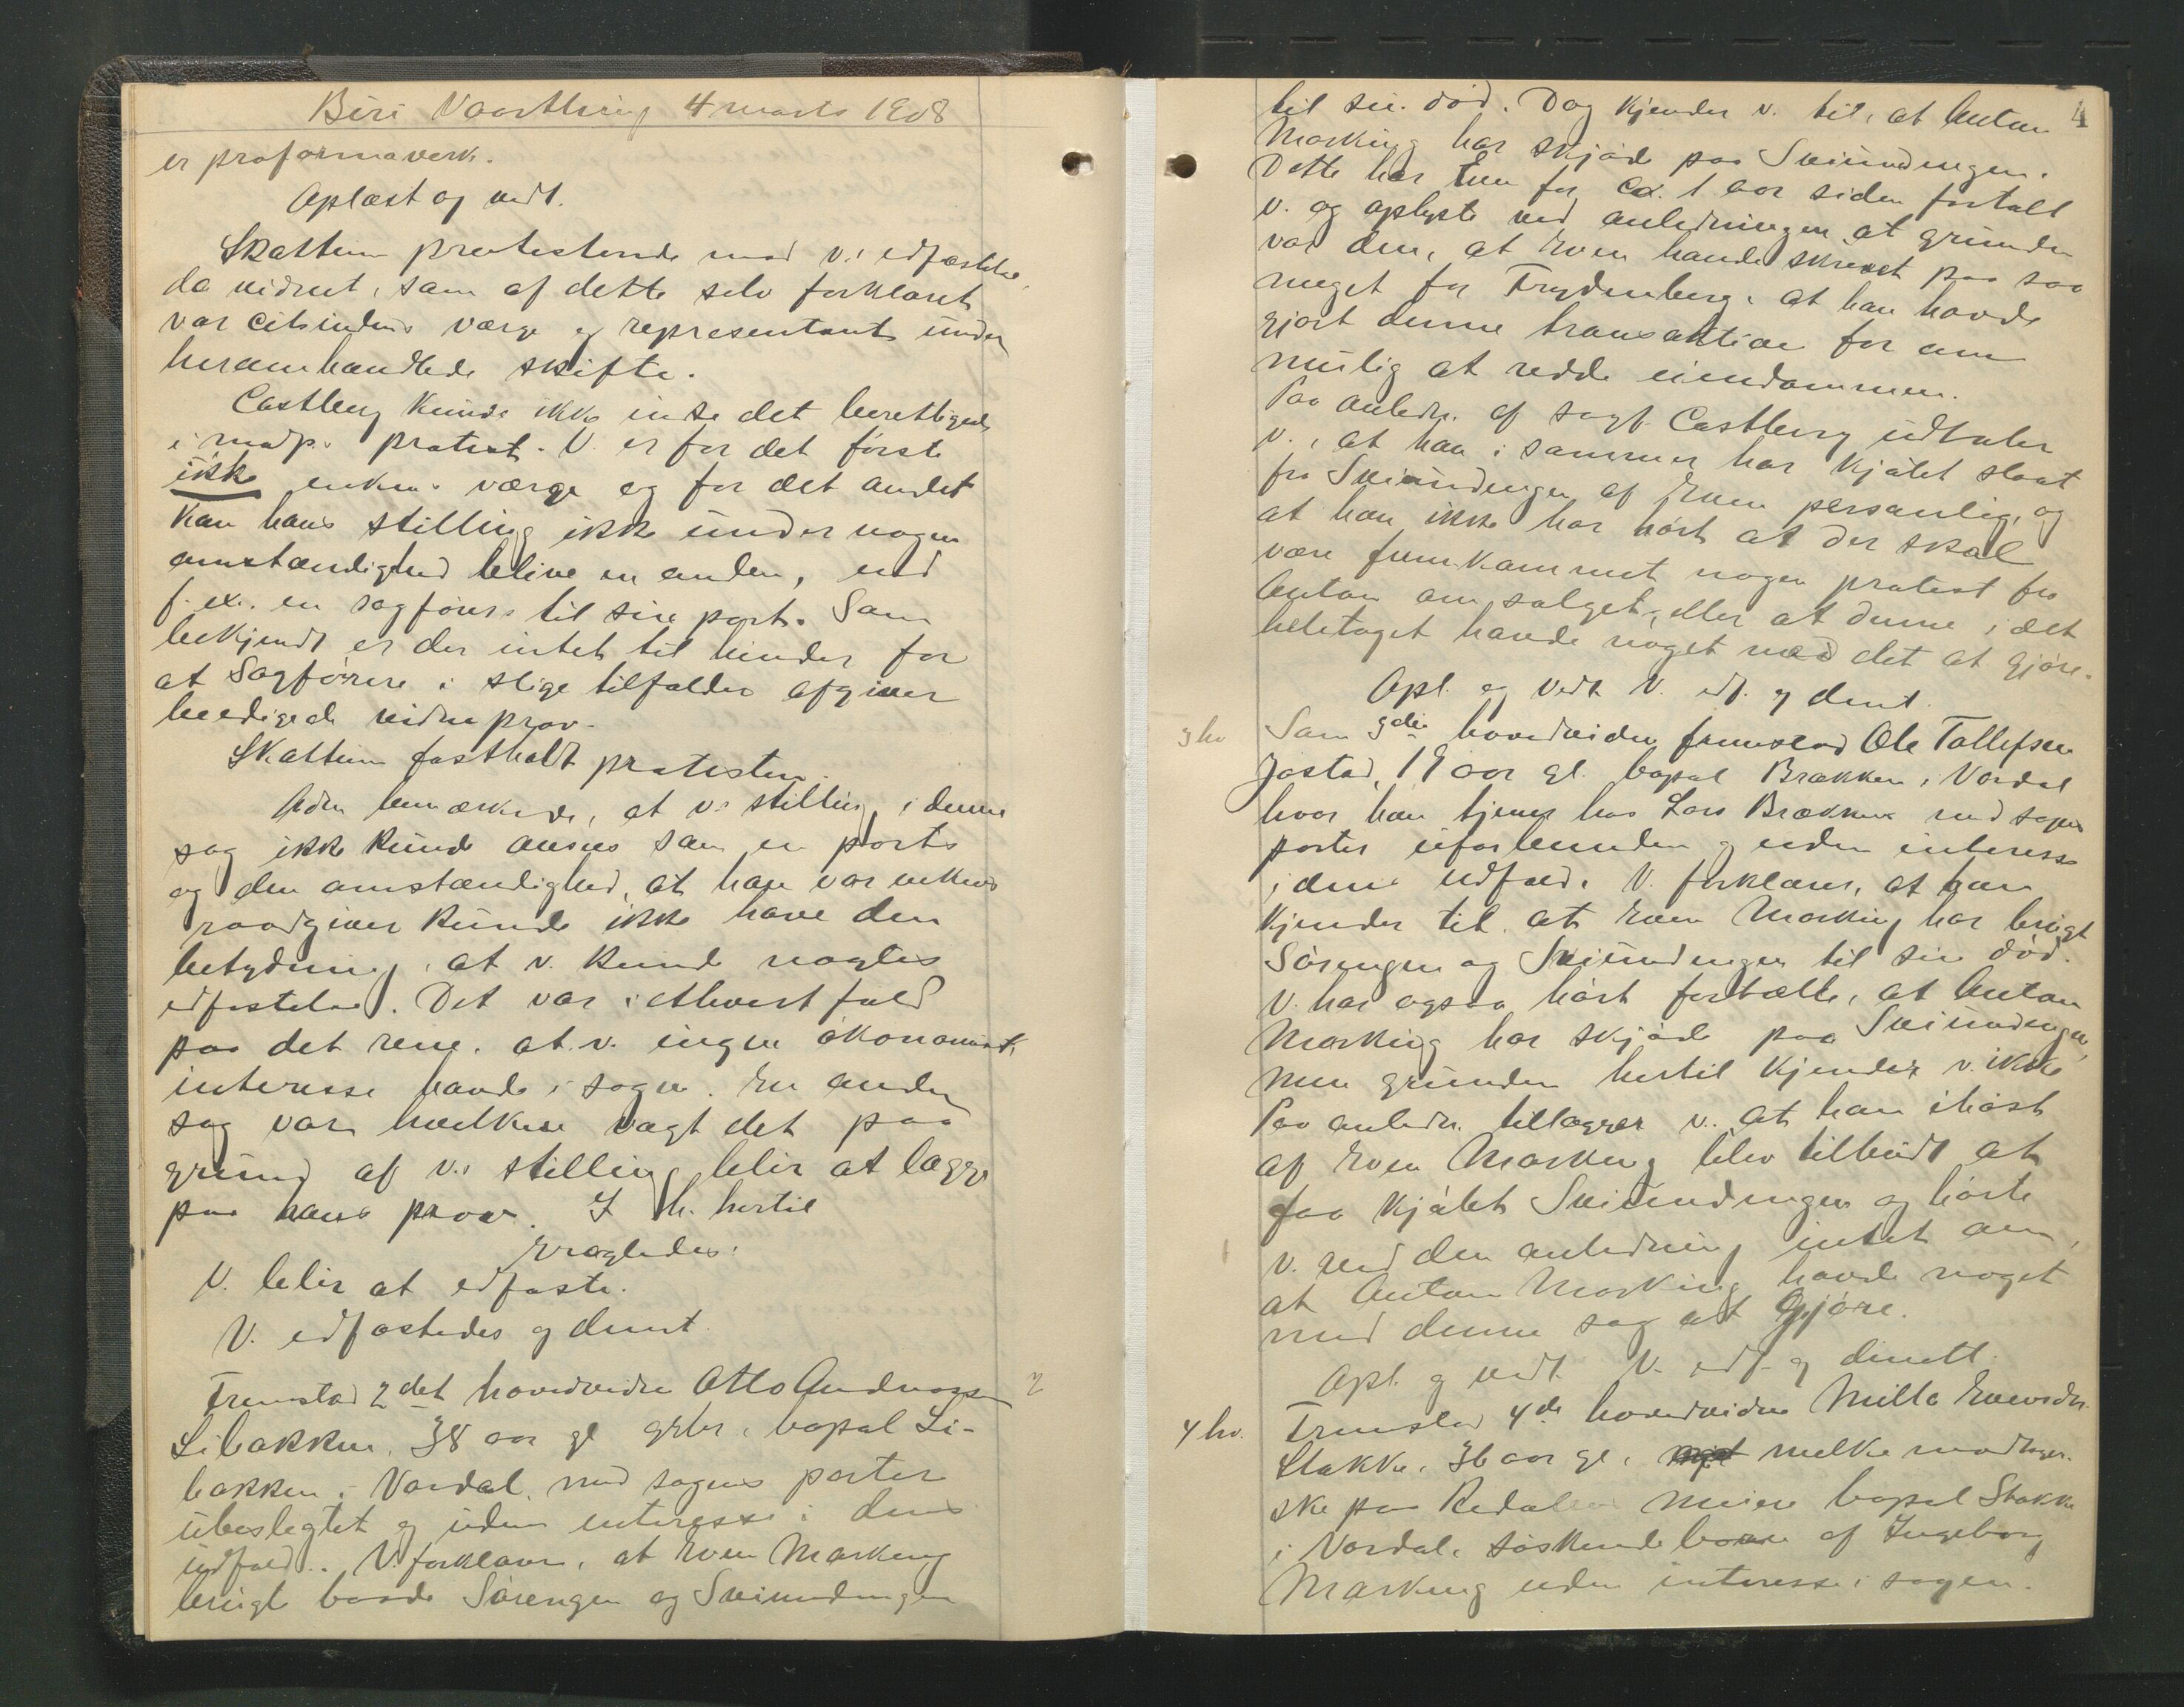 Biri Vaarthing 4 marts 1908
er proformaverk.
Oplæst og vedt.
Skattum protesterede mod v.s edfæstelse,
da vidnet, som af dette selv forklaret
var citsindens værge og repræsentant under
heromhandlede skifte.
Castberg kunde ikke indse det berettigede
i modp.s protest. V. er for det første
ikke enkens værge og for det andet
kan hans stilling ikke under nogen
omstændighed blive en anden, end
f. ex. en sagførers til sin part. Som
bekjendt er der intet til hinder for
at Sagførere i slige tilfælder afgiver
beedigede vidneprov.
Skattum fastholdt protesten.
Adm bemærkede, at v.s stilling i denne
sag ikke kunde ansees som en parts
og den omstændighed, at han var enkens
raadgiver kunde ikke have den
betydning, at v. kunde nægtes
edfæstelse. Det var i ethvert fald
paa det rene, at v. ingen økonomisk
interesse havde i sagen. En anden
sag var hvilken vægt det paa
grund af v.s stilling blir at lægge
paa hans prov. I h. hertil
eragtedes:
V. blir at edfæste.
V. edfæstedes og dimt.
Fremstod 2det hovedvidne Otto Andreassen
2
Libakken, 38 aar gl gbr, bopæl Li-
bakken i Vardal, med sagens parter
ubeslegtet og uden interesse i dens
udfald. V. forklarer, at Even Marking
brugte baade Sørengen og Sviundingen
4
til sin død. Dog kjender v. til, at Anton
Marking har skjøde paa Sviundingen.
Dette har Even for ca. 1 aar siden fortalt
v. og oplyste ved anledningen at grunden
var den, at Even havde skrevet paa saa
meget for Frydenberg, at han havde
gjort denne transaktion for om
mulig at redde eiendommen.
Paa anledn. af sagf. Castberg udtaler
v., at han i sommer har kjøbt slaat
fra Sviundingen af Even personlig, og
at han ikke har hørt at der skal
være fremkommet nogen protest fra
Anton om salget, eller at denne i det
heletaget havde noget med det at gjøre.
Opl. og vedt. V. edf. og dimt.
3 hv
Som 3die hovedvidne fremstod Ole Tollefsen
Jøstad, 19 aar gl. bopæl Brækken i Vardal
hvor han tjener hos Lars Brækken med sagens
parter uforbunden og uden interesse
i dens udfald. V. forklarer, at han
kjender til at Even Marking har brugt
Sørengen og Sviundingen til sin død.
V. har ogsaa hørt fortælle, at Anton
Marking har skjøde paa Sviundingen,
men grunden hertil kjender v. ikke
Paa anledn. tillægger v. at han ihøst
af Even Marking blev tilbudt at
faa kjøbt Sviundingen og hørte
v. ved den anledning intet om,
at Anton Marking havde noget
med denne sag at gjøre.
Opl. og vedt. V. edf. og dimitt.
4 hv.
Fremstod 4de hovedvidne Milla Evensdtr.
Stakke, 36 aar gl, melkemodtager-
ske paa Redalens meieri bopæl Stakke
i Vardal, søskendebarn af Ingeborg
Marking uden interesse i sagen.